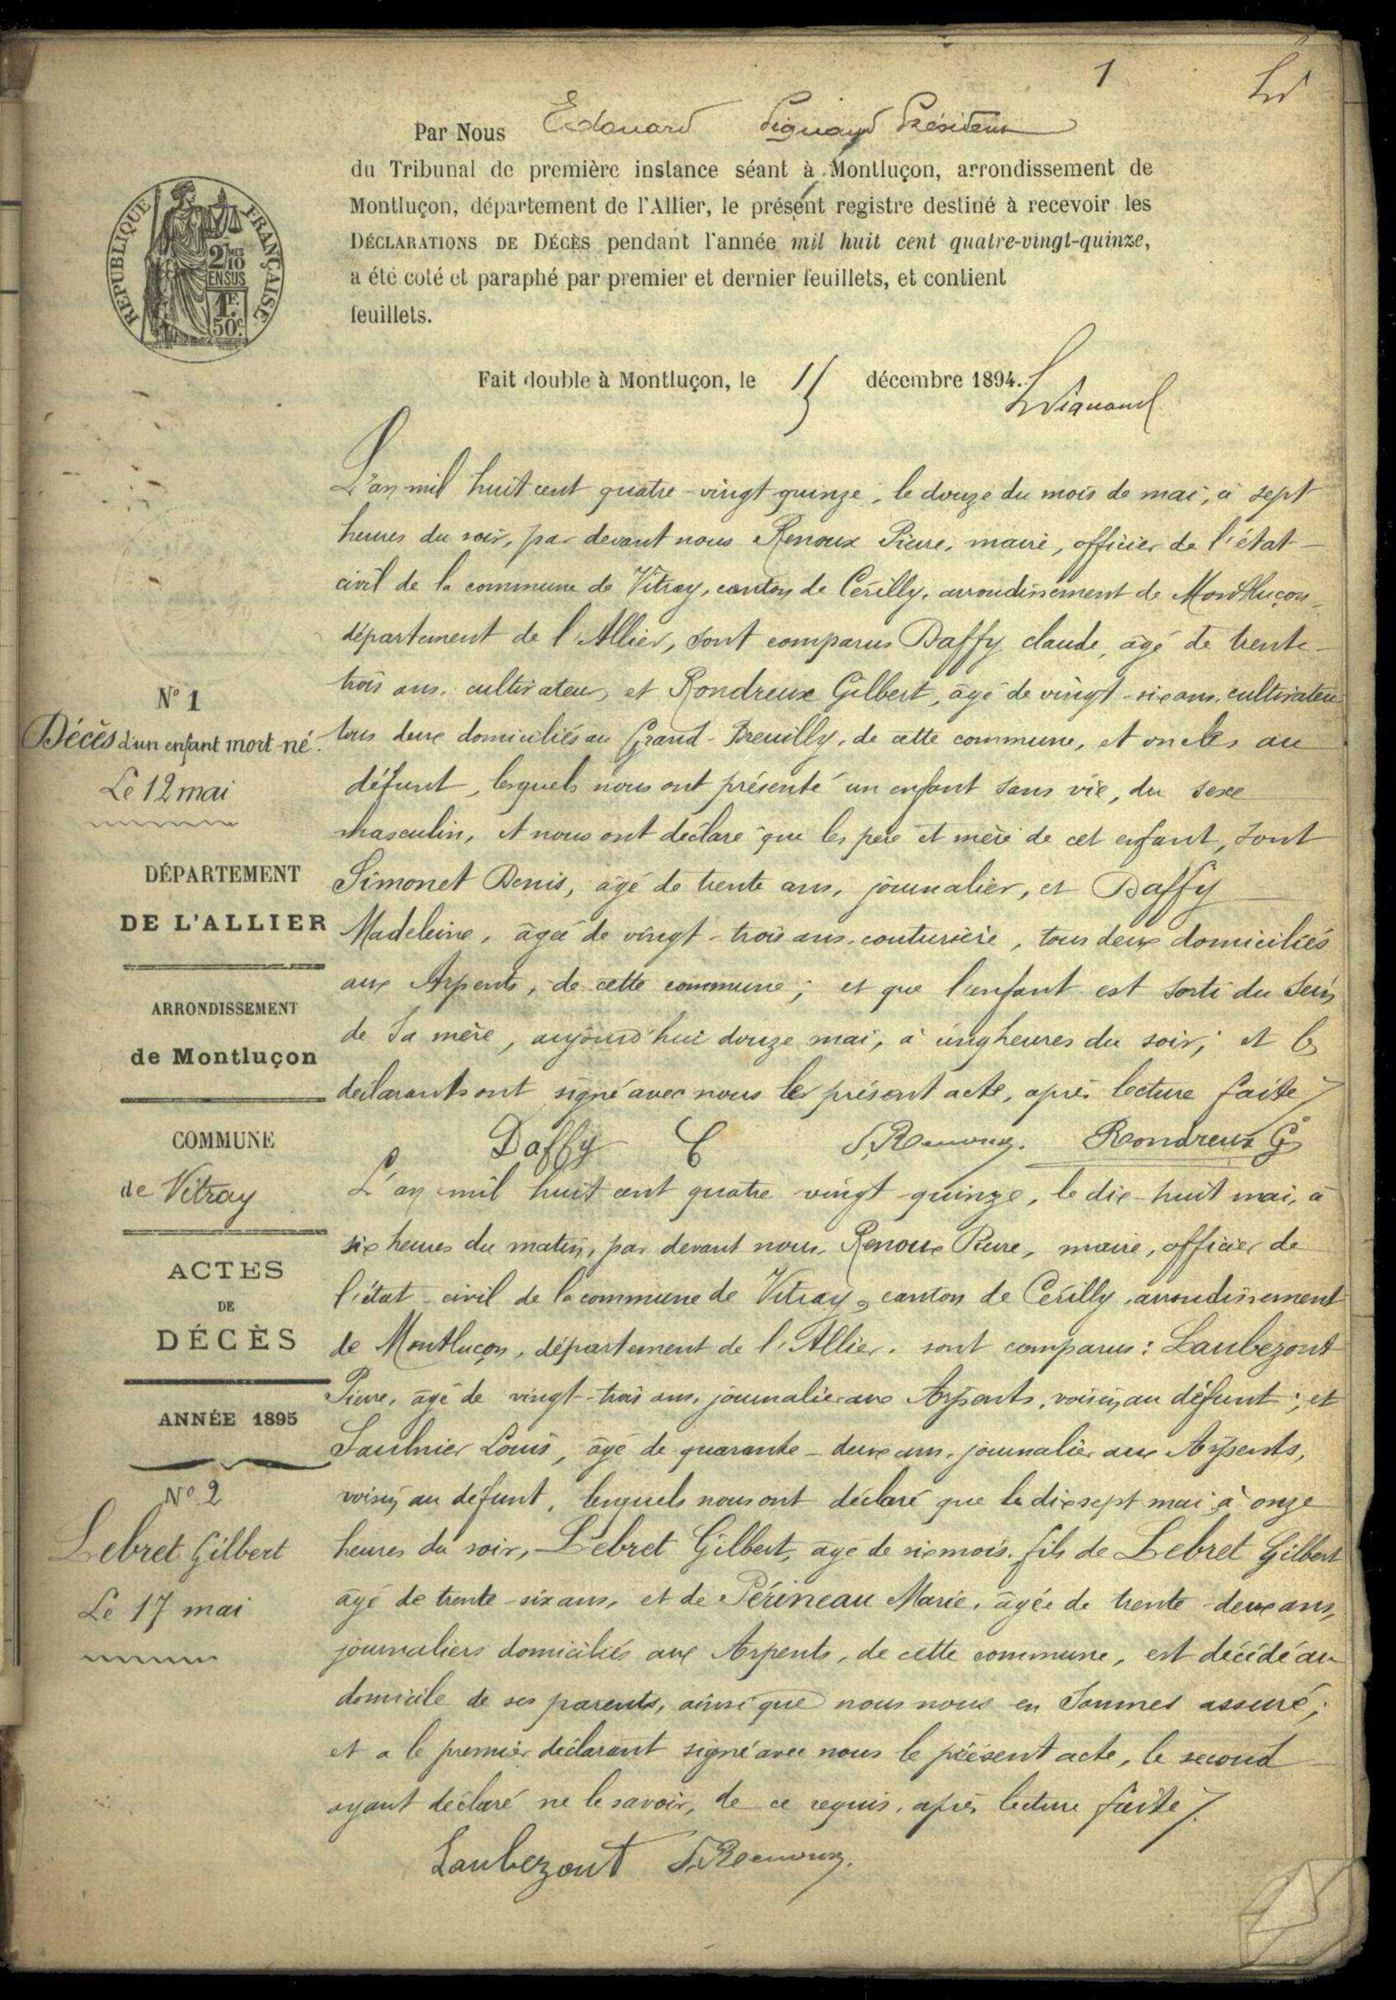 1
Par Nous Edouard Vignaud Président
du Tribunal de première instance séant à Montluçon, arrondissement de
Montluçon, département de l'Allier, le présent registre destiné à recevoir les
DÉCLARATIONS DE DÉCÈS pendant l'année mil huit cent quatre-vingt-quinze,
a été coté et paraphé par premier et dernier feuillets, et contient
feuillets.
Fait double à Montluçon, le 15 décembre 1894.
Vignaud
RÉPUBLIQUE FRANÇAISE
2/10 EN SUS
1F.
50c
L'an mil huit cent quatre-vingt quinze, le douze du mois de mai, à sept
heures du soir, par devant nous Renoux Pierre, maire, officier de l'état-
civil de la commune de Vitray, canton de Cérilly, arrondissement de Montluçon,
département de l'Allier, sont comparus Daffy claude, âgé de trente-
trois ans, cultivateur, et Rondreux Gilbert, âgé de vingt-six ans, cultivateur
tous deux domiciliés au Grand-Breuilly, de cette commune, et oncles au
défunt, lesquels nous ont présenté un enfant sans vie, du sexe
masculin, et nous ont déclaré que les père et mère de cet enfant, sont
Simonet Denis, âgé de trente ans, journalier, et Daffy
Madeleine, âgée de vingt-trois ans, couturière, tous deux domiciliés
aux Arpents, de cette commune; et que l'enfant est sorti du sein
de sa mère, aujourd'hui douze mai, à cinq heures du soir; et les
déclarants ont signé avec nous le présent acte, après lecture faite ./.
Daffy C P. Renoux. Rondreux G
N° 1
Décès d'un enfant mort-né.
Le 12 mai
DÉPARTEMENT
DE L'ALLIER
ARRONDISSEMENT
de Montluçon
COMMUNE
de Vitray
ACTES
DE
DÉCÈS
ANNÉE 1895
L'an mil huit cent quatre vingt-quinze, le dix-huit mai, à
six heures du matin, par devant nous, Renoux Pierre, maire, officier de
l'état-civil de la commune de Vitray, canton de Cérilly, arrondissement
de Montluçon, département de l'Allier, sont comparus: Laubezont
Pierre, âgé de vingt-trois ans, journalier aux Arpents, voisin au défunt; et
Saulnier Louis, âgé de quarante-deux ans, journalier aux Arpents,
voisin au défunt, lesquels nous ont déclaré que le dix sept mai à onze
heures du soir, Lebret Gilbert, âgé de six mois, fils de Lebret Gilbert
âgé de trente-six ans, et de Périneau Marie, âgée de trente-deux ans,
journaliers domiciliés aux Arpents, de cette commune, est décédé au
domicile de ses parents, ainsi que nous nous en sommes assuré;
et a le premier déclarant signé avec nous le présent acte, le second
ayant déclaré ne le savoir, de ce requis, après lecture faite ./.
Laubezont P. Renoux.
N° 2
Lebret Gilbert
Le 17 mai